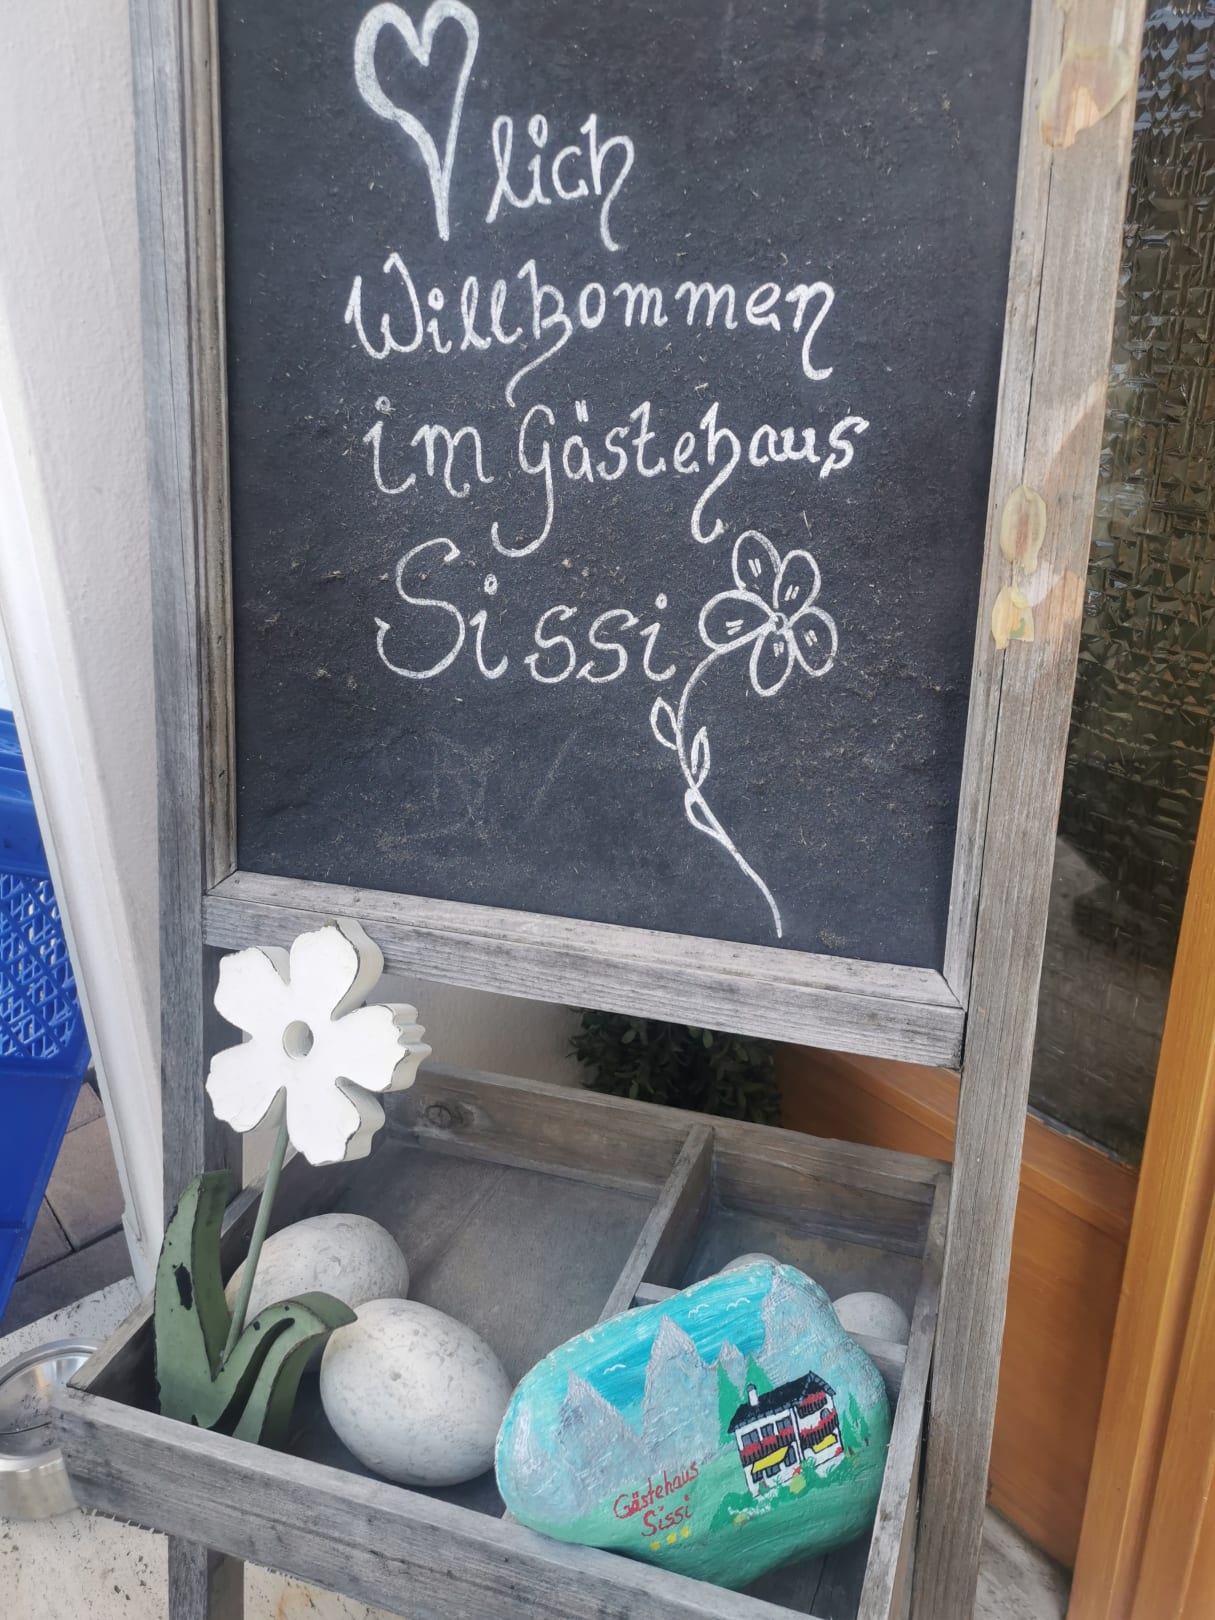 lich
Willkommen
im Gästehaus
Sissi
Gästehaus
Sissi